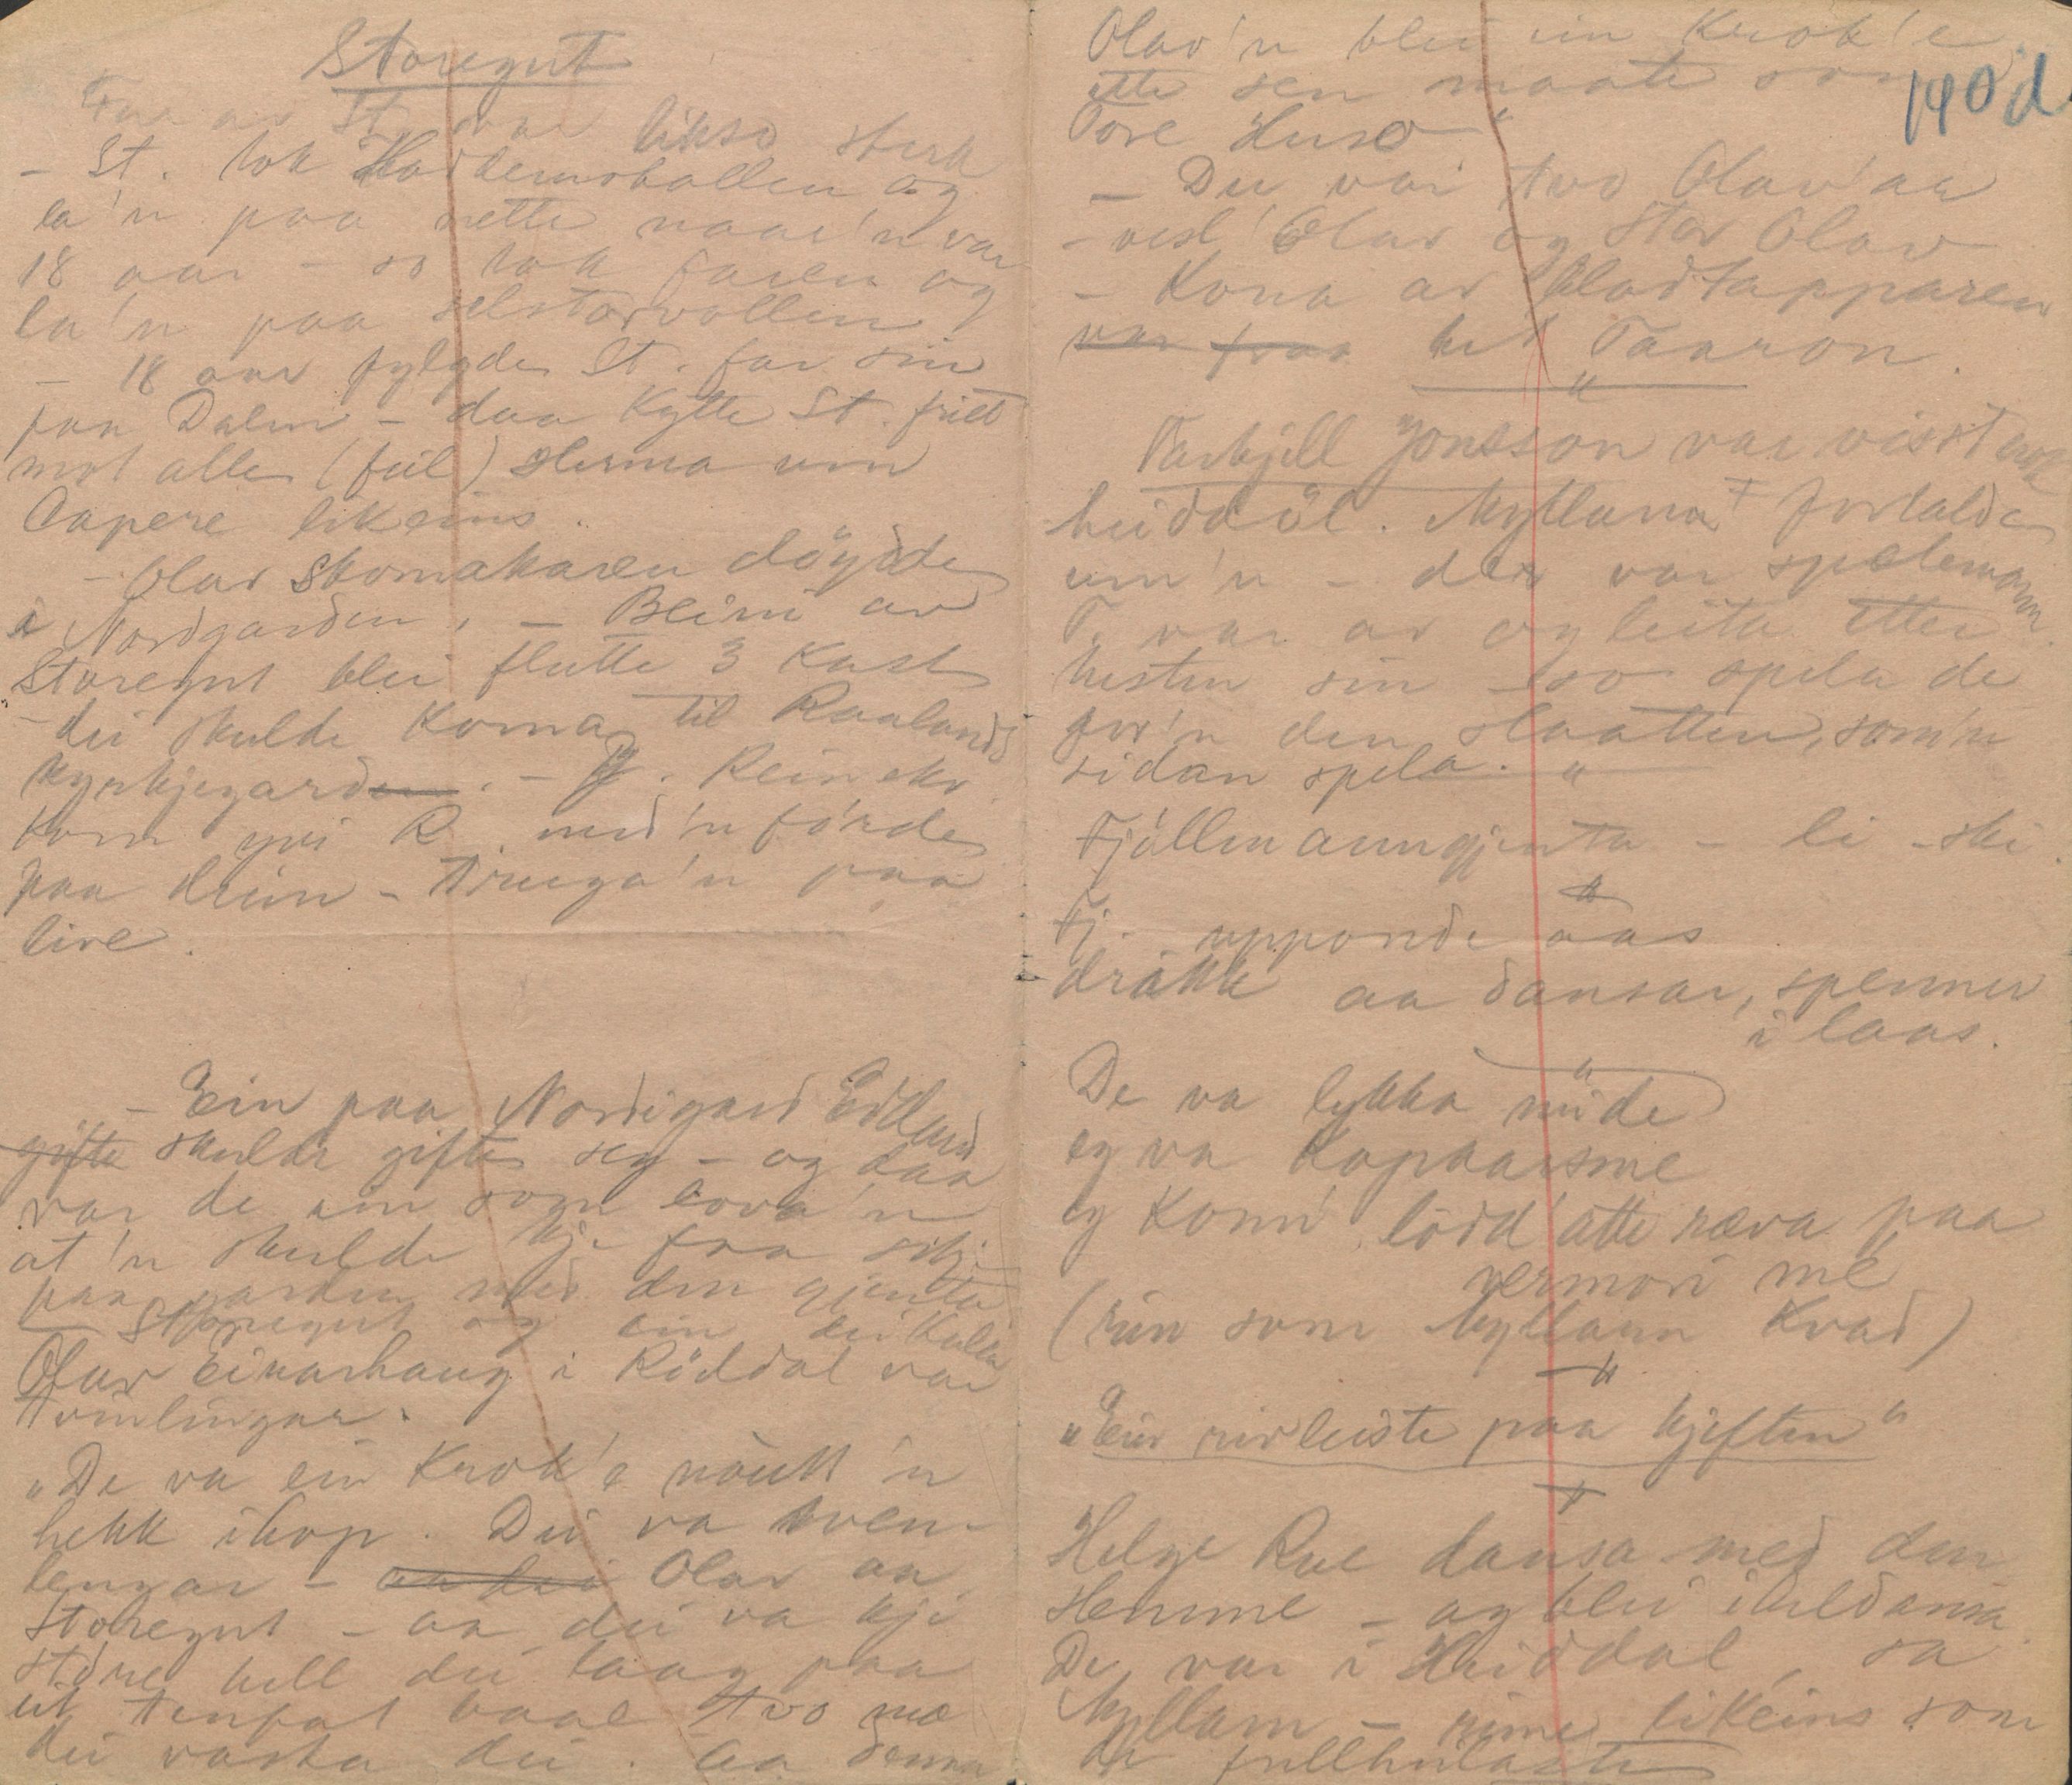 Storegut
Far av St. var likso sterk
- St. tok Hardemoballen og
la'n paa nette naar'n var
18 aar - so tok faren og
la'n paa selstovvollen
- 18 aar fylgde St. far sin
paa Dalen - daa kytte St. frit
mot alle (feil) sterma um
Capere likeins.
- Olav Skomakaren döydde
i Nordgarden. - Beini av
Storegut blei flutte 3 kast
- dei skulde koma til Raulands
kyrkjegard. - J. Reineks
kom yvi R med'n förde
paa dein - truga'n paa
live.
- Ein paa Nordigard Edland
gifte skulde gifte seg - og daa
var de ein som lova'n
at'n skulde kje faa sitji
paa garden med den gjenta
Storegut og ein dei kalla
Olav Eivarhaug i Röddal var
tvinlingar.
"De va ein Krok'e nòukk'n
hekk ihop. Dei va tven-
lengar - aa dei Olav aa
Storegut - aa dei va kji
stòre hell dei laag paa
eit tenfat baae tvo mæ
dei vaska dei. Aa denna
Olav'n blei ein Krok'e
ette sen maate som
Tore Huso"
140 d.
- Dei var tvo Olav'aa
- vesl'Olav og Stor Olav
- Kona av Bladtapparen
var fraa het Taaron.
"
Tarkjell Jonsson var visst enok
heiddöl. Myllarn fortalde
um'n - der var spelemann.
T. var av og leita etter
hesten sin - so spela de
for'n den slaatten, som'n
sidan spela. "
Fjöllemanngjenta - li - ski.
"
Fj. upponde aas
drakk aa dansar, spenner
i laas.
"
De va lykka mi de
eg va kapaarsme
eg kom' lödd'atte ræva paa
vermori me
(rim som Myllarn kvad)
"
"Ein rivleiste paa kjeften"
"
Helge Rue dansa med den
stemme - og blei iheldansa.
De var i Heiddal, sa
Myllarn - rime likeins som
de fullhulaste